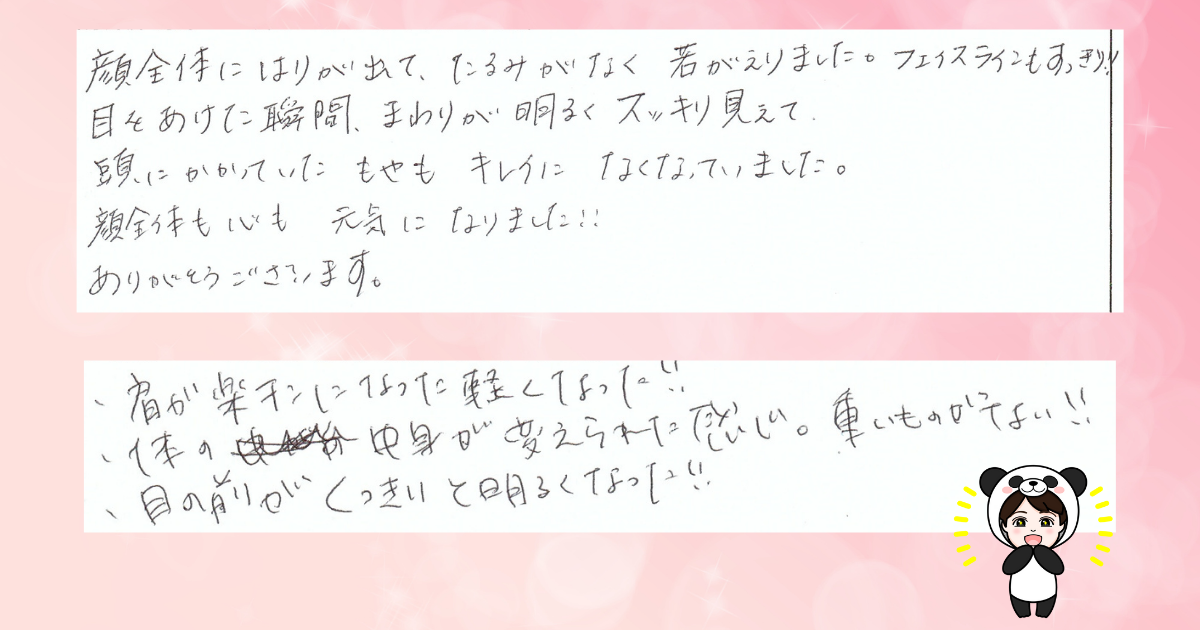 顔全体にはりが出て、たるみがなく 若がえりました。フェイスラインもすっきり!!
目をあけた瞬間、まわりが明るくスッキリ見えて、
頭にかかっていたもやも キレイに なくなっていました。
顔全体も心も 元気になりました!!
ありがとうございます。
、肩が楽チンになった軽くなった!!
、体の 中身が変えられた感じ。重いものがでない!!
、目の前がくっきりと明るくなった!!